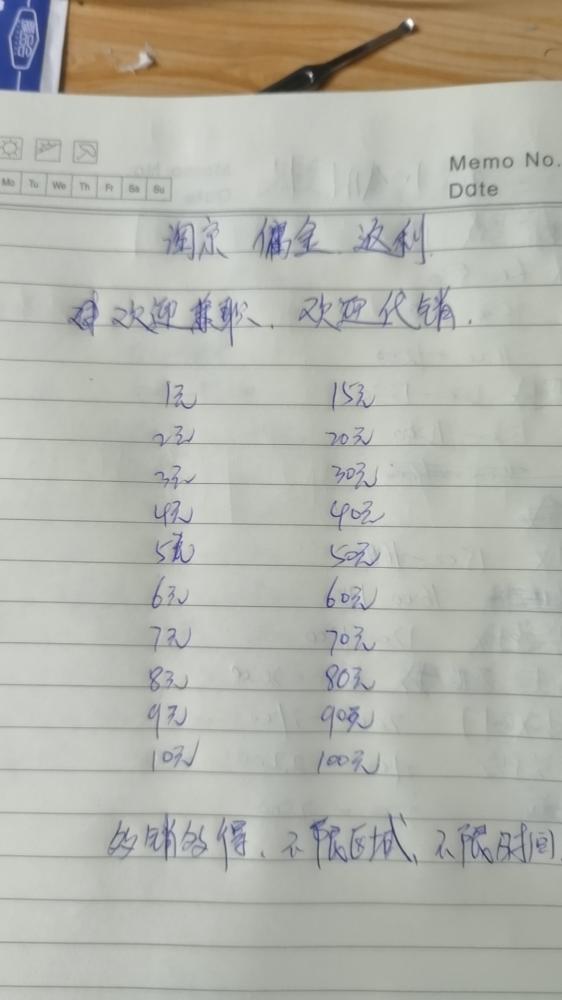 Memo No.
Mo Tu We Th Fr Sa Su
Date
淘京 佣金 返利
欢迎兼职、欢迎代销.
1元 15元
2元 20元
3元 30元
4元 40元
5元 50元
6元 60元
7元 70元
8元 80元
9元 90元
10元 100元
多销多得、不限区域、不限时间